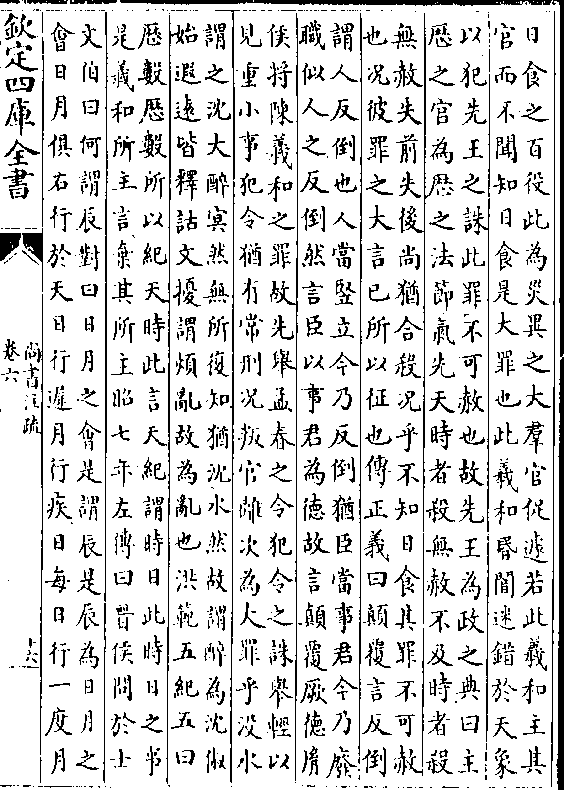 日食之百役此為災異之大羣官促遽若此羲和主其
官而不聞知日食是大罪也此羲和昏闇迷錯於天象
以犯先王之誅此罪不可赦也故先王為政之典曰主
厯之官為厯之法節氣先天時者殺無赦不及時者殺
無赦失前失後尚猶合殺況乎不知日食其罪不可赦
也況彼罪之大言已所以征也傳正義曰顛覆言反倒
謂人反倒也人當竪立今乃反倒猶臣當事君今乃廢
職似人之反倒然言臣以事君為德故言顛覆厥德㣧
侯將陳羲和之罪故先舉孟春之令犯令之誅舉輕以
見重小事犯令猶有常刑況叛官離次為大罪乎沒水
謂之沈大醉冥然無所復知猶沈水然故謂醉為沈俶
始遐遠皆釋詁文擾謂煩亂故為亂也洪範五紀五曰
厯數厯數所以紀天時此言天紀謂時日此時日之事
是羲和所主言棄其所主昭七年左傳曰晉侯問於士
文伯曰何謂辰對曰日月之會是謂辰是辰為日月之
會日月俱右行於天日行遲月行疾日每日行一度月
欽定四庫全書
尚書注疏
卷六
十六